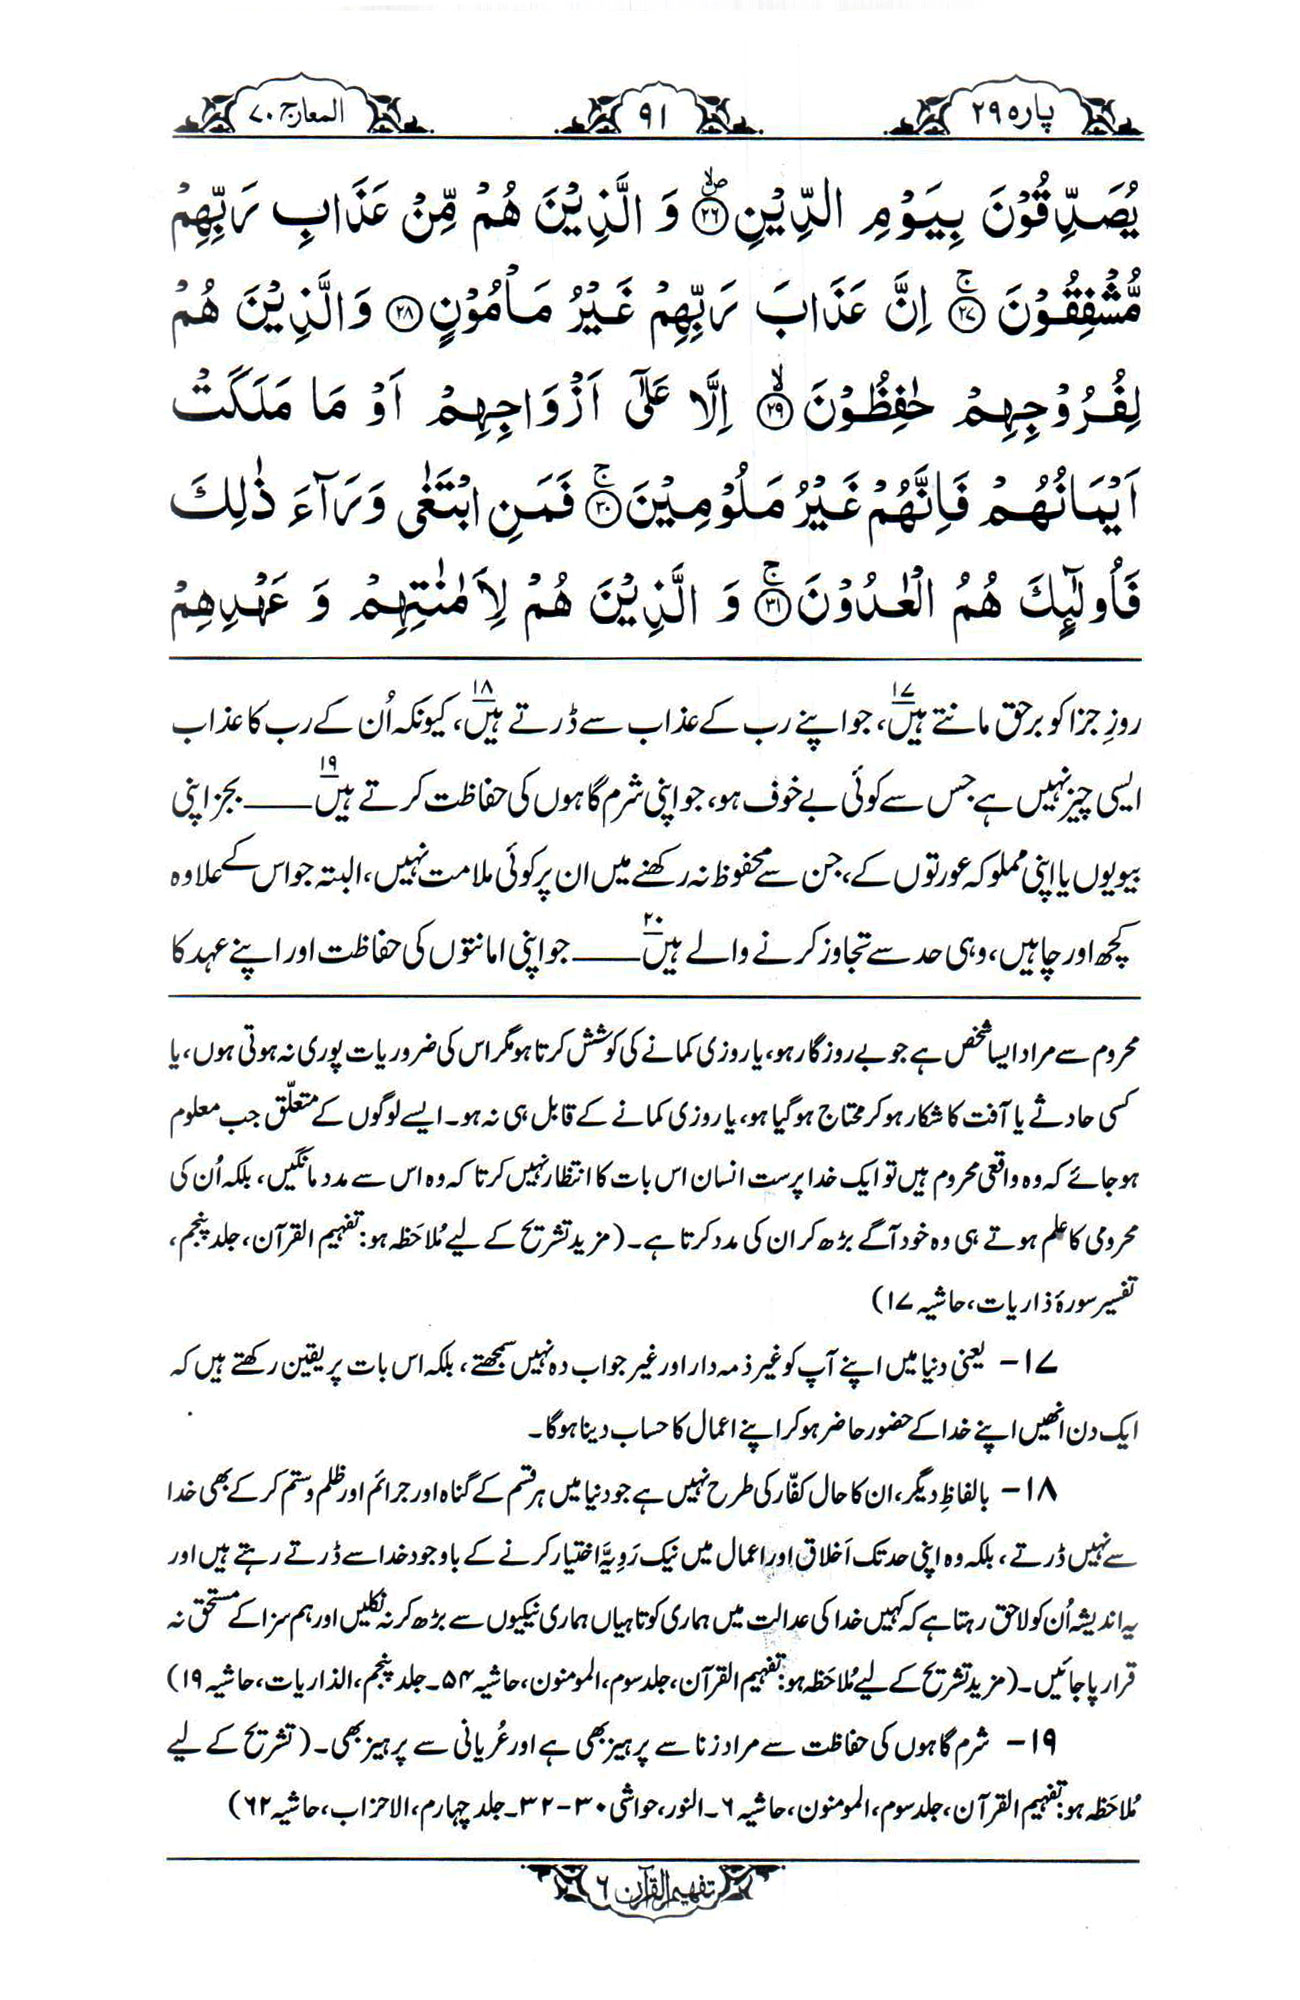 پارہ ۲۹
۹۱
المعارج ۷۰
يُصَدِّقُوْنَ بِيَوْمِ الدِّيْنِ ۪ۙۖ﴿۲۶﴾ وَ الَّذِيْنَ هُمْ مِّنْ عَذَابِ رَبِّهِمْ
مُّشْفِقُوْنَ ۚ﴿۲۷﴾ اِنَّ عَذَابَ رَبِّهِمْ غَيْرُ مَاْمُوْنٍ ﴿۲۸﴾ وَالَّذِيْنَ هُمْ
لِفُرُوْجِهِمْ حٰفِظُوْنَ ۙ﴿۲۹﴾ اِلَّا عَلٰٓى اَزْوَاجِهِمْ اَوْ مَا مَلَكَتْ
اَيْمَانُهُمْ فَاِنَّهُمْ غَيْرُ مَلُوْمِيْنَ ۚ﴿۳۰﴾ فَمَنِ ابْتَغٰى وَرَآءَ ذٰلِكَ
فَاُولٰٓئِكَ هُمُ الْعٰدُوْنَ ۚ﴿۳۱﴾ وَ الَّذِيْنَ هُمْ لِاَمٰنٰتِهِمْ وَ عَهْدِهِمْ
روزِ جزا کو برحق مانتے ہیں۱۷، جو اپنے رب کے عذاب سے ڈرتے ہیں۱۸، کیونکہ اُن کے رب کا عذاب
ایسی چیز نہیں ہے جس سے کوئی بے خوف ہو، جو اپنی شرم گاہوں کی حفاظت کرتے ہیں۱۹ ــــــ بجز اپنی
بیویوں یا اپنی مملوکہ عورتوں کے، جن سے محفوظ نہ رکھنے میں ان پر کوئی ملامت نہیں، البتہ جو اس کے علاوہ
کچھ اور چاہیں، وہی حد سے تجاوز کرنے والے ہیں۲۰ ــــــ جو اپنی امانتوں کی حفاظت اور اپنے عہد کا
محروم سے مراد ایسا شخص ہے جو بے روزگار ہو، یا روزی کمانے کی کوشش کرتا ہو مگر اس کی ضروریات پوری نہ ہوتی ہوں، یا
کسی حادثے یا آفت کا شکار ہو کر محتاج ہو گیا ہو، یا روزی کمانے کے قابل ہی نہ ہو۔ ایسے لوگوں کے متعلّق جب معلوم
ہو جائے کہ وہ واقعی محروم ہیں تو ایک خدا پرست انسان اس بات کا انتظار نہیں کرتا کہ وہ اس سے مدد مانگیں، بلکہ اُن کی
محرومی کا علم ہوتے ہی وہ خود آگے بڑھ کر ان کی مدد کرتا ہے۔ (مزید تشریح کے لیے مُلاحَظہ ہو: تفہیم القرآن، جلد پنجم،
تفسیر سورۂ ذاریات، حاشیہ ۱۷)
۱۷- یعنی دنیا میں اپنے آپ کو غیر ذمہ دار اور غیر جواب دہ نہیں سمجھتے، بلکہ اس بات پر یقین رکھتے ہیں کہ
ایک دن انھیں اپنے خدا کے حضور حاضر ہو کر اپنے اعمال کا حساب دینا ہوگا۔
۱۸- بالفاظِ دیگر، ان کا حال کفّار کی طرح نہیں ہے جو دنیا میں ہر قسم کے گناہ اور جرائم اور ظلم و ستم کر کے بھی خدا
سے نہیں ڈرتے، بلکہ وہ اپنی حد تک اَخلاق اور اعمال میں نیک رَوِیَّہ اختیار کرنے کے باوجود خدا سے ڈرتے رہتے ہیں اور
یہ اندیشہ اُن کو لاحق رہتا ہے کہ کہیں خدا کی عدالت میں ہماری کوتاہیاں ہماری نیکیوں سے بڑھ کر نہ نکلیں اور ہم سزا کے مستحق نہ
قرار پا جائیں۔ (مزید تشریح کے لیے مُلاحَظہ ہو: تفہیم القرآن، جلد سوم، المومنون، حاشیہ ۵۴۔ جلد پنجم، الذاریات، حاشیہ ۱۹)
۱۹- شرم گاہوں کی حفاظت سے مراد زنا سے پرہیز بھی ہے اور عُریانی سے پرہیز بھی۔ (تشریح کے لیے
مُلاحَظہ ہو: تفہیم القرآن، جلد سوم، المومنون، حاشیہ ۶۔ النور، حواشی ۳۰-۳۲۔ جلد چہارم، الاحزاب، حاشیہ ۶۲)
تفہیم القرآن ۶